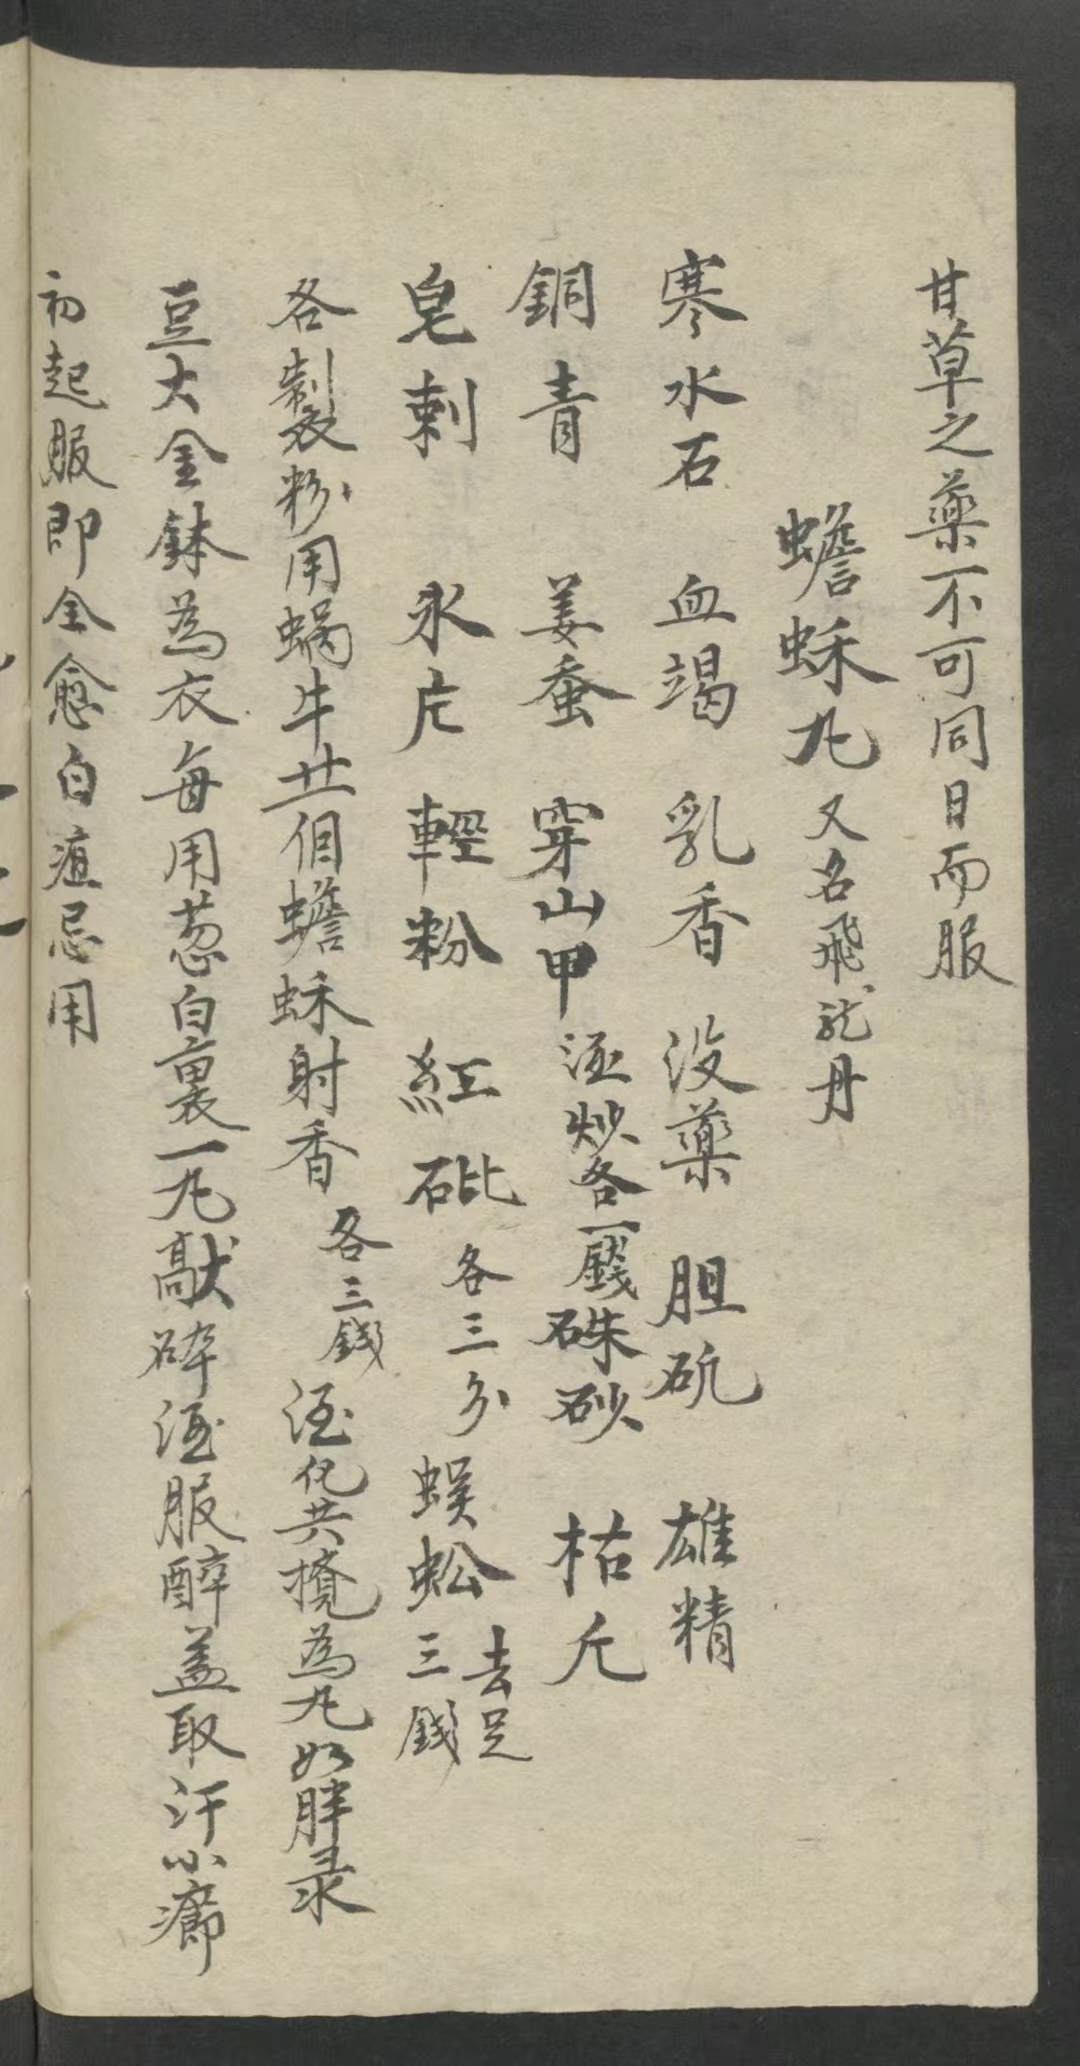 甘草之藥不可同日而服
蟾蘇丸又名飛龙丹
寒水石 血竭 乳香 没藥 胆矾 雄精
銅青 姜蚕 穿山甲 酒炒各一錢 硃砂 枯凡
皂刺 氷片 輕粉 紅砒 各三分 蜈蚣 去足三錢
各製粉用蝸牛廿一個蟾蘇射香 各三錢 酒化共攪為丸如胖录
豆大金鉢為衣每用葱白裏一丸敲碎酒服醉盖取汗小癤
初起服即全愈白疽忌用